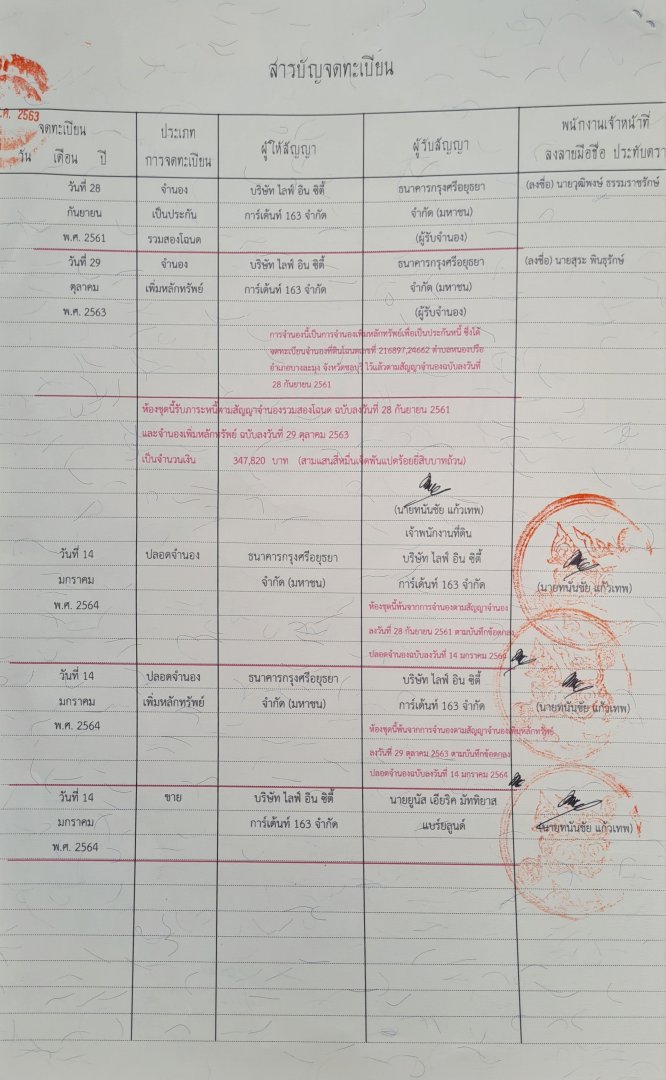 สารบัญจดทะเบียน
ค. 2563
จดทะเบียน
วัน เดือน ปี
ประเภท
การจดทะเบียน
ผู้ให้สัญญา
ผู้รับสัญญา
พนักงานเจ้าหน้าที่
ลงลายมือชื่อ ประทับตรา
วันที่ 28 จำนอง บริษัท ไลฟ์ อิน ซิตี้ ธนาคารกรุงศรีอยุธยา (ลงชื่อ) นายวุฒิพงษ์ ธรรมราชรักษ์
กันยายน เป็นประกัน การ์เด้นท์ 163 จำกัด จำกัด (มหาชน)
พ.ศ. 2561 รวมสองโฉนด (ผู้รับจำนอง)
วันที่ 29 จำนอง บริษัท ไลฟ์ อิน ซิตี้ ธนาคารกรุงศรีอยุธยา (ลงชื่อ) นายสุระ พินธุรักษ์
ตุลาคม เพิ่มหลักทรัพย์ การ์เด้นท์ 163 จำกัด จำกัด (มหาชน)
พ.ศ. 2563 (ผู้รับจำนอง)
การจำนองนี้เป็นการจำนองเพิ่มหลักทรัพย์เพื่อเป็นประกันหนี้ ซึ่งได้
จดทะเบียนจำนองที่ดินโฉนดเลขที่ 216897,24662 ตำบลหนองปรือ
อำเภอบางละมุง จังหวัดชลบุรี ไว้แล้วตามสัญญาจำนองฉบับลงวันที่
28 กันยายน 2561
ห้องชุดนี้รับภาระหนี้ตามสัญญาจำนองรวมสองโฉนด ฉบับลงวันที่ 28 กันยายน 2561
และจำนองเพิ่มหลักทรัพย์ ฉบับลงวันที่ 29 ตุลาคม 2563
เป็นจำนวนเงิน 347,820 บาท (สามแสนสี่หมื่นเจ็ดพันแปดร้อยยี่สิบบาทถ้วน)
(นายทนันชัย แก้วเทพ)
เจ้าพนักงานที่ดิน
วันที่ 14 ปลอดจำนอง ธนาคารกรุงศรีอยุธยา บริษัท ไลฟ์ อิน ซิตี้
มกราคม จำกัด (มหาชน) การ์เด้นท์ 163 จำกัด (นายทนันชัย แก้วเทพ)
พ.ศ. 2564 ห้องชุดนี้พ้นจากการจำนองตามสัญญาจำนอง
ลงวันที่ 28 กันยายน 2561 ตามบันทึกข้อตกลง
ปลอดจำนองฉบับลงวันที่ 14 มกราคม 2564
วันที่ 14 ปลอดจำนอง ธนาคารกรุงศรีอยุธยา บริษัท ไลฟ์ อิน ซิตี้
มกราคม เพิ่มหลักทรัพย์ จำกัด (มหาชน) การ์เด้นท์ 163 จำกัด (นายทนันชัย แก้วเทพ)
พ.ศ. 2564 ห้องชุดนี้พ้นจากการจำนองตามสัญญาจำนองเพิ่มหลักทรัพย์
ลงวันที่ 29 ตุลาคม 2563 ตามบันทึกข้อตกลง
ปลอดจำนองฉบับลงวันที่ 14 มกราคม 2564
วันที่ 14 ขาย บริษัท ไลฟ์ อิน ซิตี้ นายยูนัส เอียริค มัททิยาส
มกราคม การ์เด้นท์ 163 จำกัด แบร์ยลูนด์ (นายทนันชัย แก้วเทพ)
พ.ศ. 2564